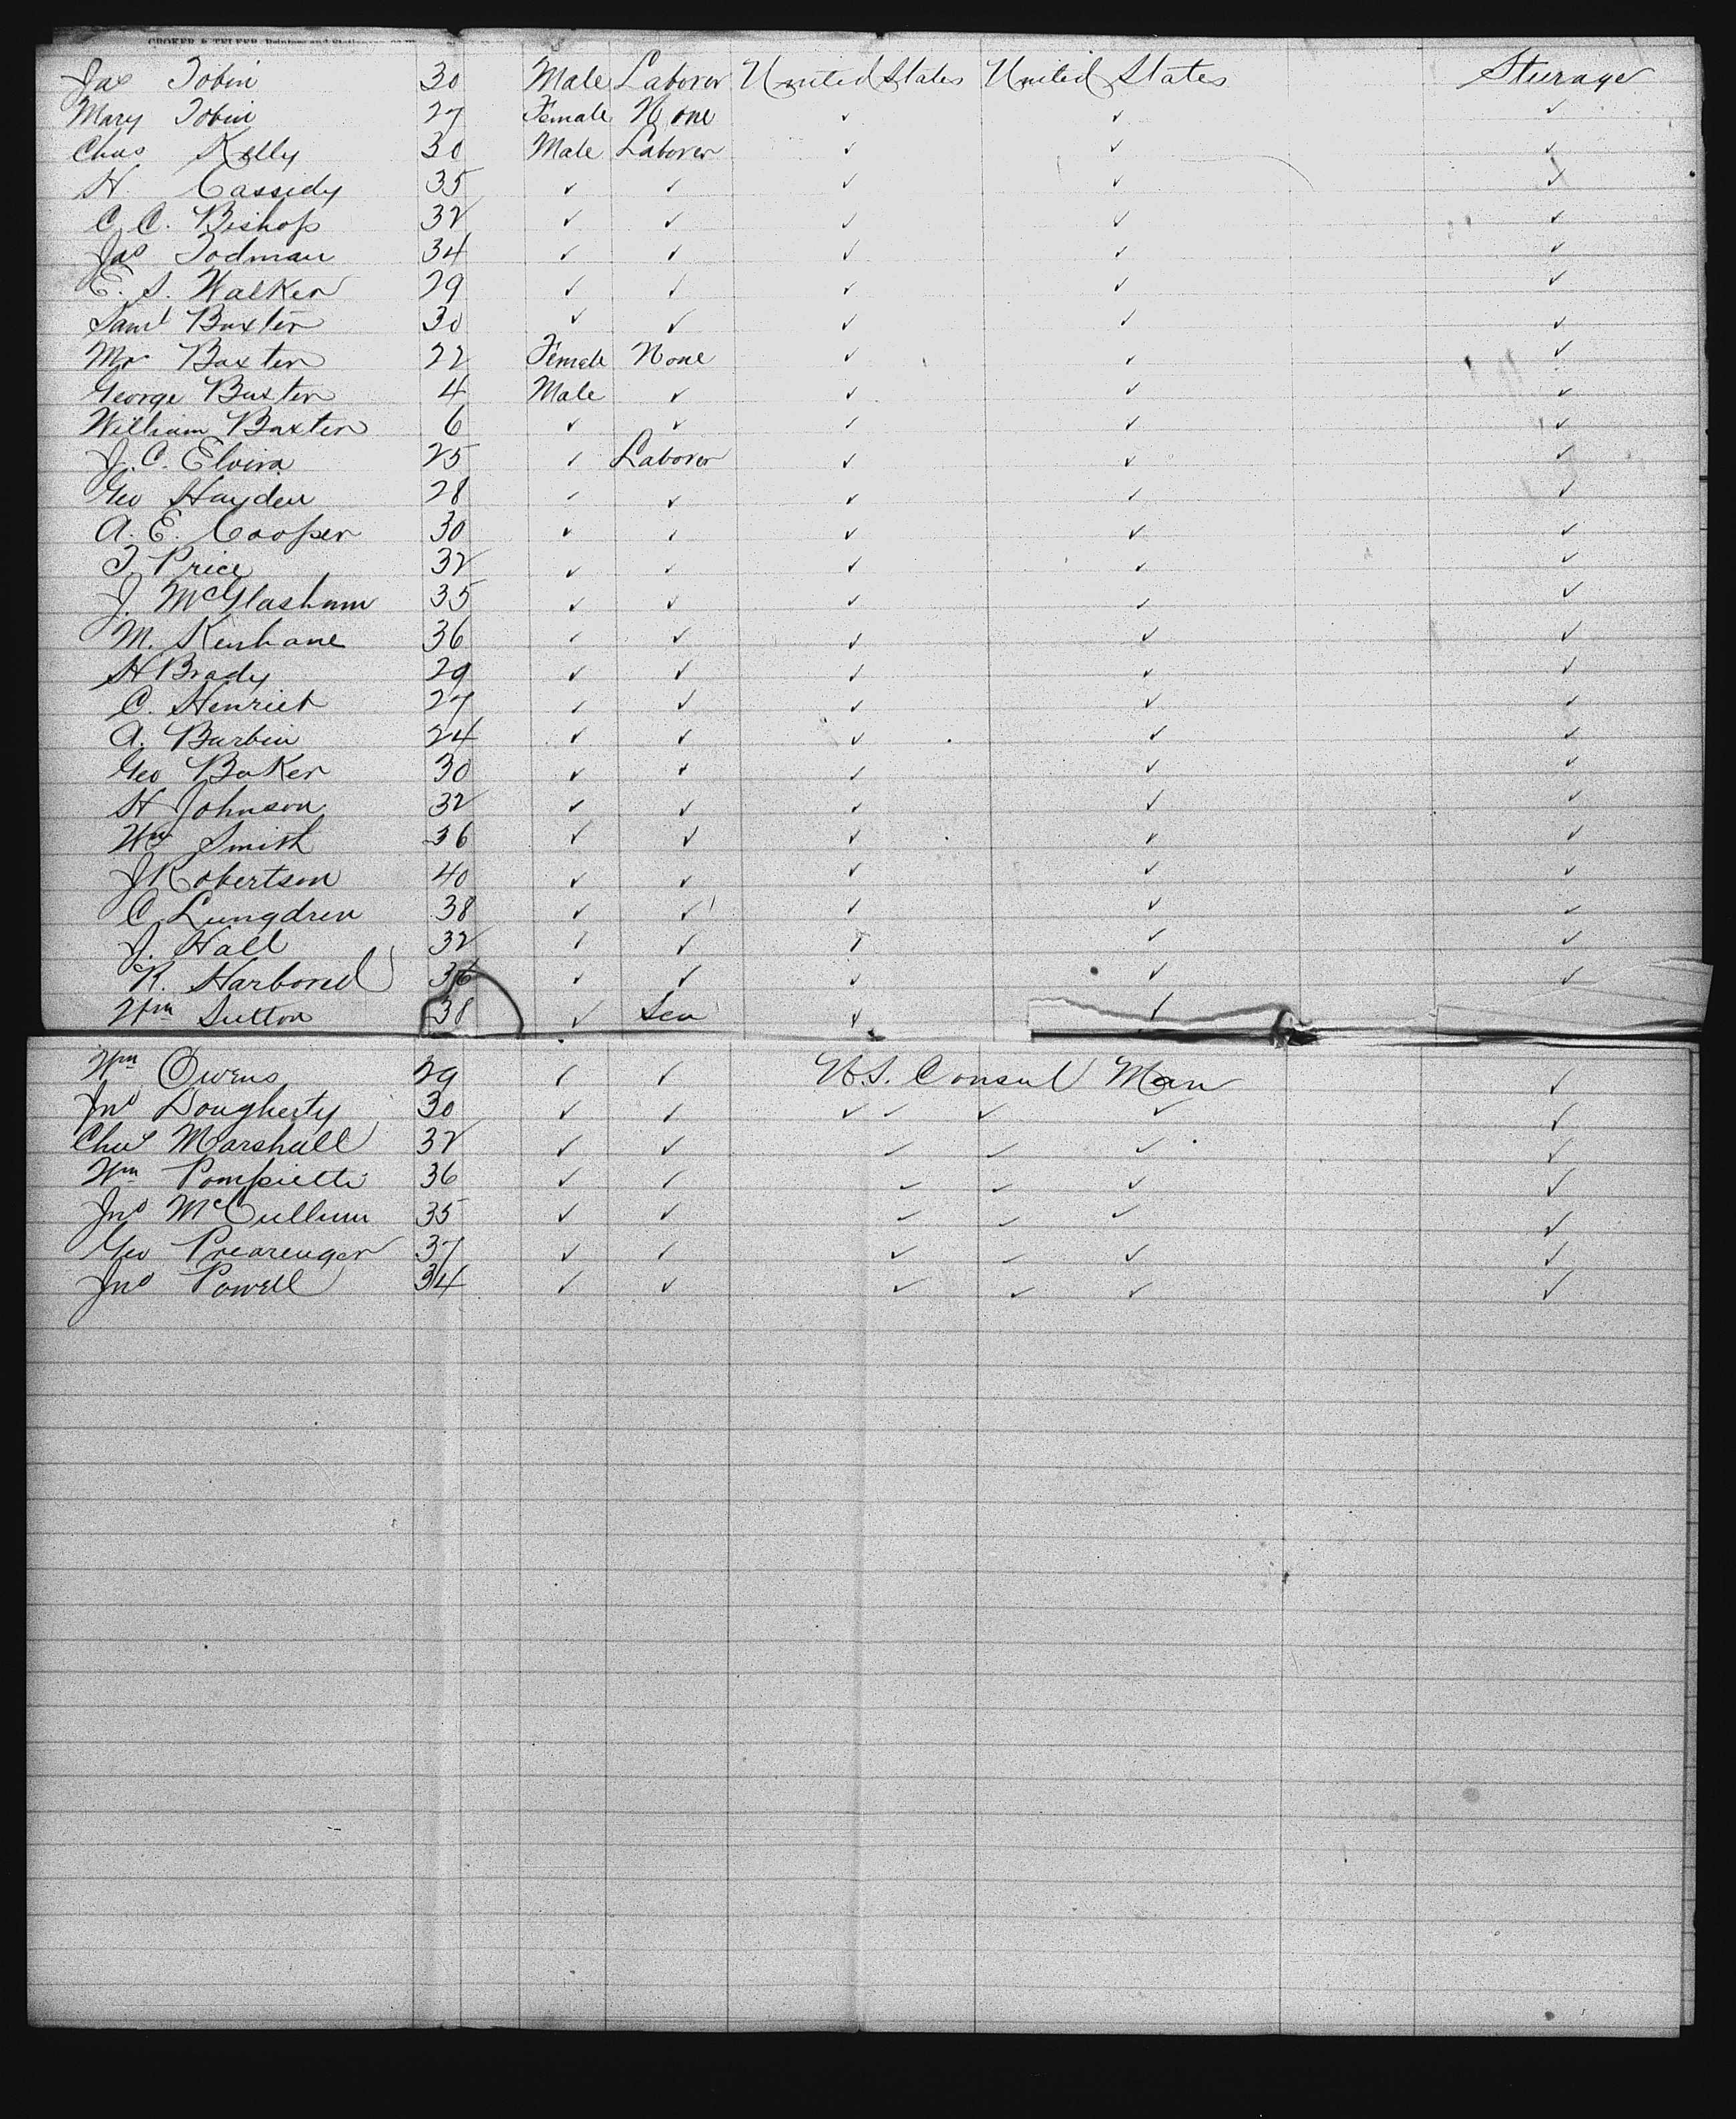 CROKER & TELFER, Printers and Stationers
Jas Tobin 30 Male Laborer United States United States Steerage
Mary Tobin 27 Female None ✓ ✓ ✓
Chas Kelly 30 Male Laborer ✓ ✓ ✓
H. Cassidy 35 ✓ ✓ ✓ ✓ ✓
C. C. Bishop 32 ✓ ✓ ✓ ✓ ✓
Jas Todman 34 ✓ ✓ ✓ ✓ ✓
E. S. Walker 29 ✓ ✓ ✓ ✓ ✓
Saml Baxter 30 ✓ ✓ ✓ ✓ ✓
Mr Baxter 22 Female None ✓ ✓ ✓
George Baxter 4 Male ✓ ✓ ✓ ✓
William Baxter 6 ✓ ✓ ✓ ✓ ✓
J. C. Elvira 25 ✓ Laborer ✓ ✓ ✓
Geo Hayden 28 ✓ ✓ ✓ ✓ ✓
A. E. Cooper 30 ✓ ✓ ✓ ✓ ✓
T. Price 32 ✓ ✓ ✓ ✓ ✓
J. McGlasham 35 ✓ ✓ ✓ ✓ ✓
M. 36 ✓ ✓ ✓ ✓ ✓
H Brady 29 ✓ ✓ ✓ ✓ ✓
C. Henrich 27 ✓ ✓ ✓ ✓ ✓
A. Barbin 24 ✓ ✓ ✓ ✓ ✓
Geo Baker 30 ✓ ✓ ✓ ✓ ✓
H Johnson 32 ✓ ✓ ✓ ✓ ✓
Wm Smith 36 ✓ ✓ ✓ ✓ ✓
J Robertson 40 ✓ ✓ ✓ ✓ ✓
C. Lungdren 38 ✓ ✓ ✓ ✓ ✓
J. Hall 32 ✓ ✓ ✓ ✓ ✓
R. Harbored 36 ✓ ✓ ✓ ✓ ✓
Wm Sutton 38 ✓ Sea ✓ ✓
Wm Owens 29 ✓ ✓ U.S. Consul Man ✓
Jno Dougherty 30 ✓ ✓ ✓ ✓ ✓ ✓ ✓
Chas Marshall 32 ✓ ✓ ✓ ✓ ✓ ✓
Wm Pompietti 36 ✓ ✓ ✓ ✓ ✓ ✓
Jno McCullum 35 ✓ ✓ ✓ ✓ ✓ ✓
Geo 37 ✓ ✓ ✓ ✓ ✓ ✓
Jno Powell 34 ✓ ✓ ✓ ✓ ✓ ✓